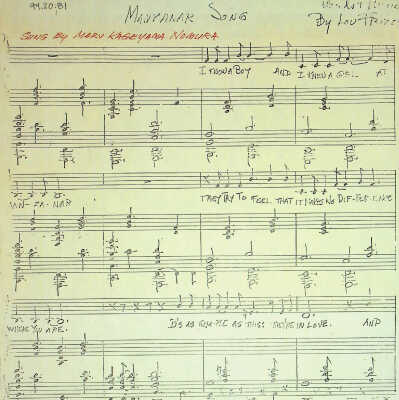 99.30.81
SONG
By Lou
SONG BY MARY KAGEYAMA NOMURA
I KNOW A BOY AND I KNOW A GIRL AT
MAN-ZA-NAR
THEY TRY TO FEEL THAT IT MAKES NO DIF-FER-ENCE
WHERE YOU ARE.
IT'S AS SIMPLE AS THIS: THEY'RE IN LOVE. AND